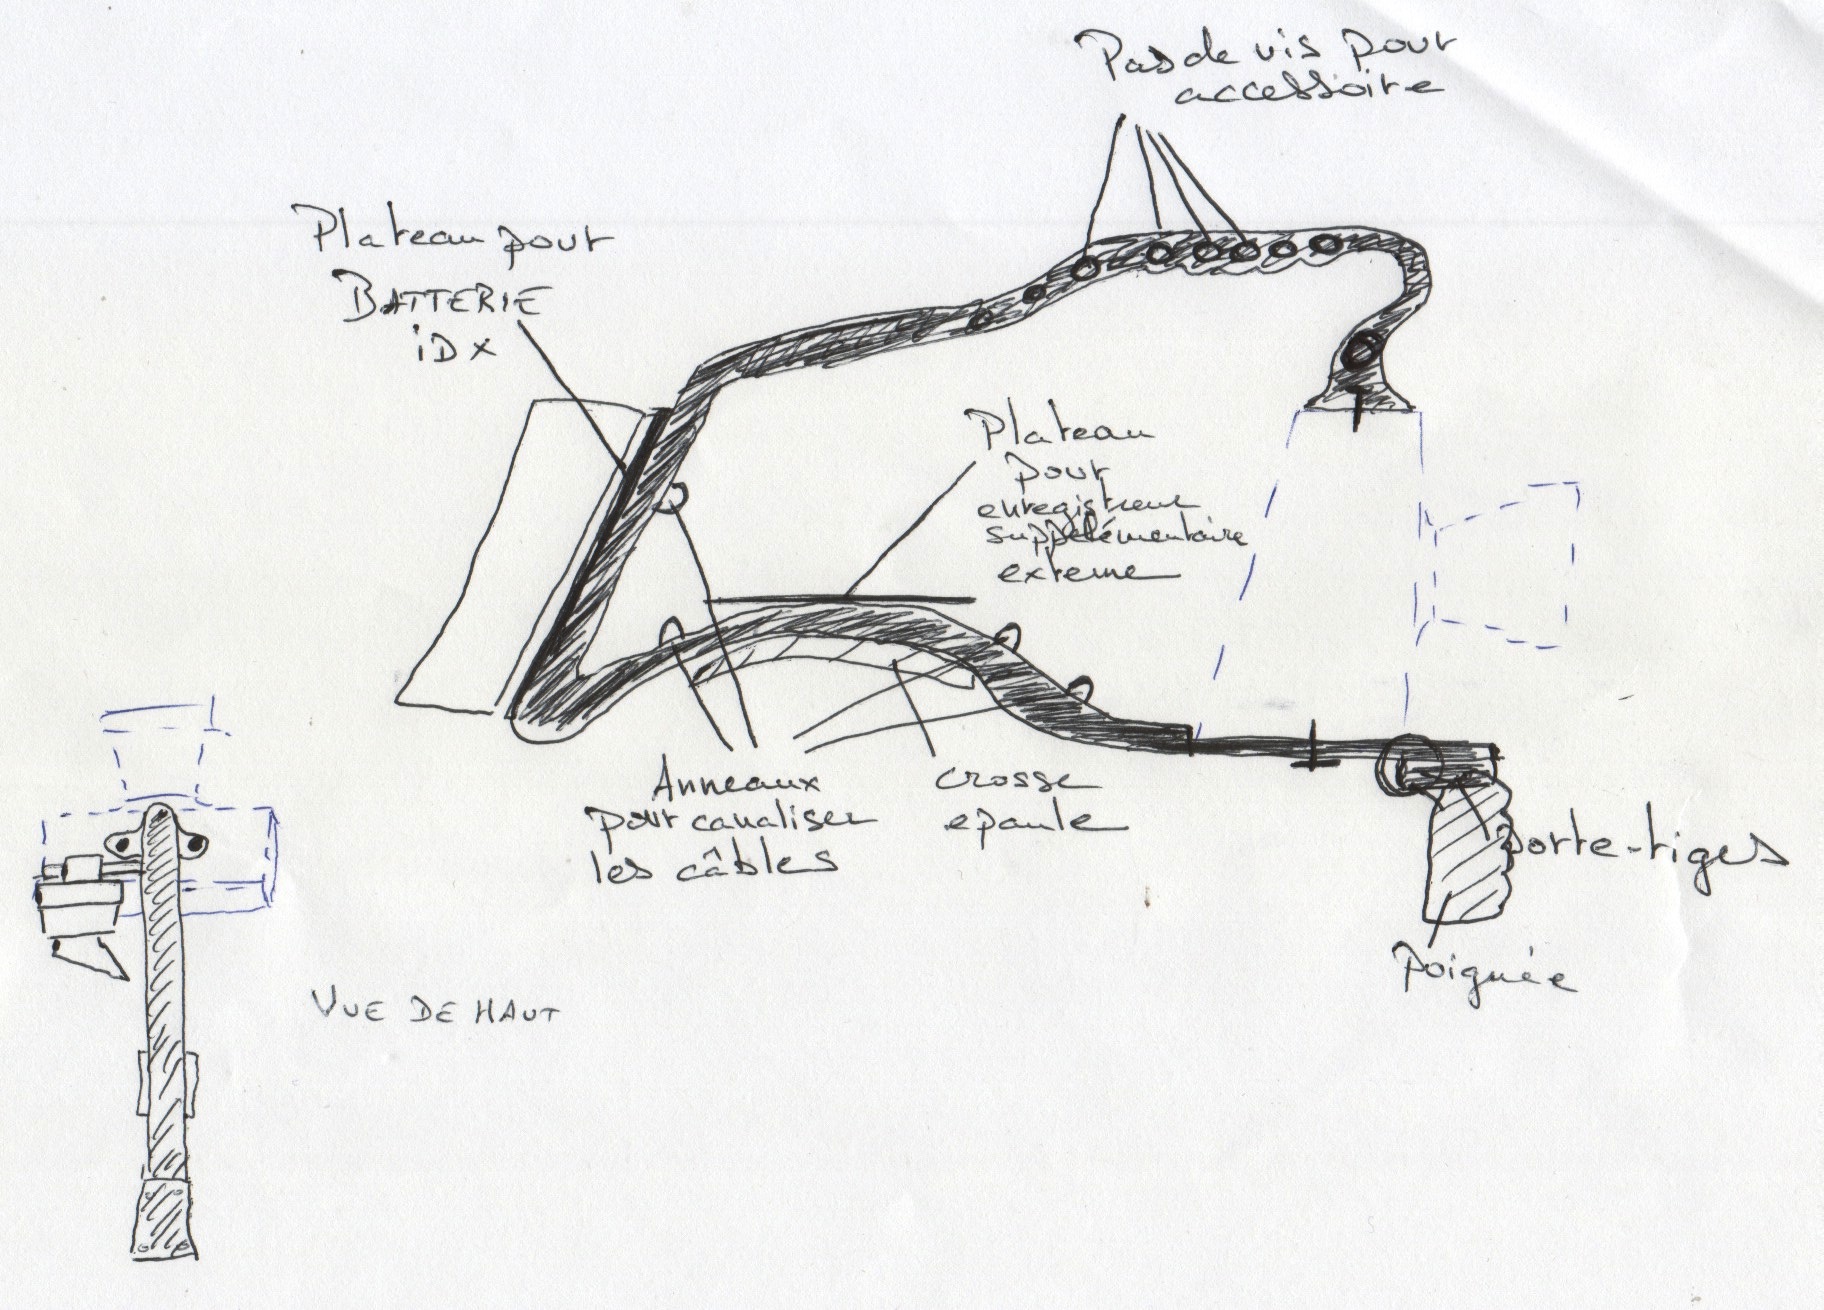 Pas de vis pour
accessoire
Plateau pour
BATTERIE
iDx
Plateau
pour
enregistreur
supplémentaire
externe
Anneaux
pour canaliser
les câbles
crosse
epaule
Porte-tiges
Poignée
VUE DE HAUT